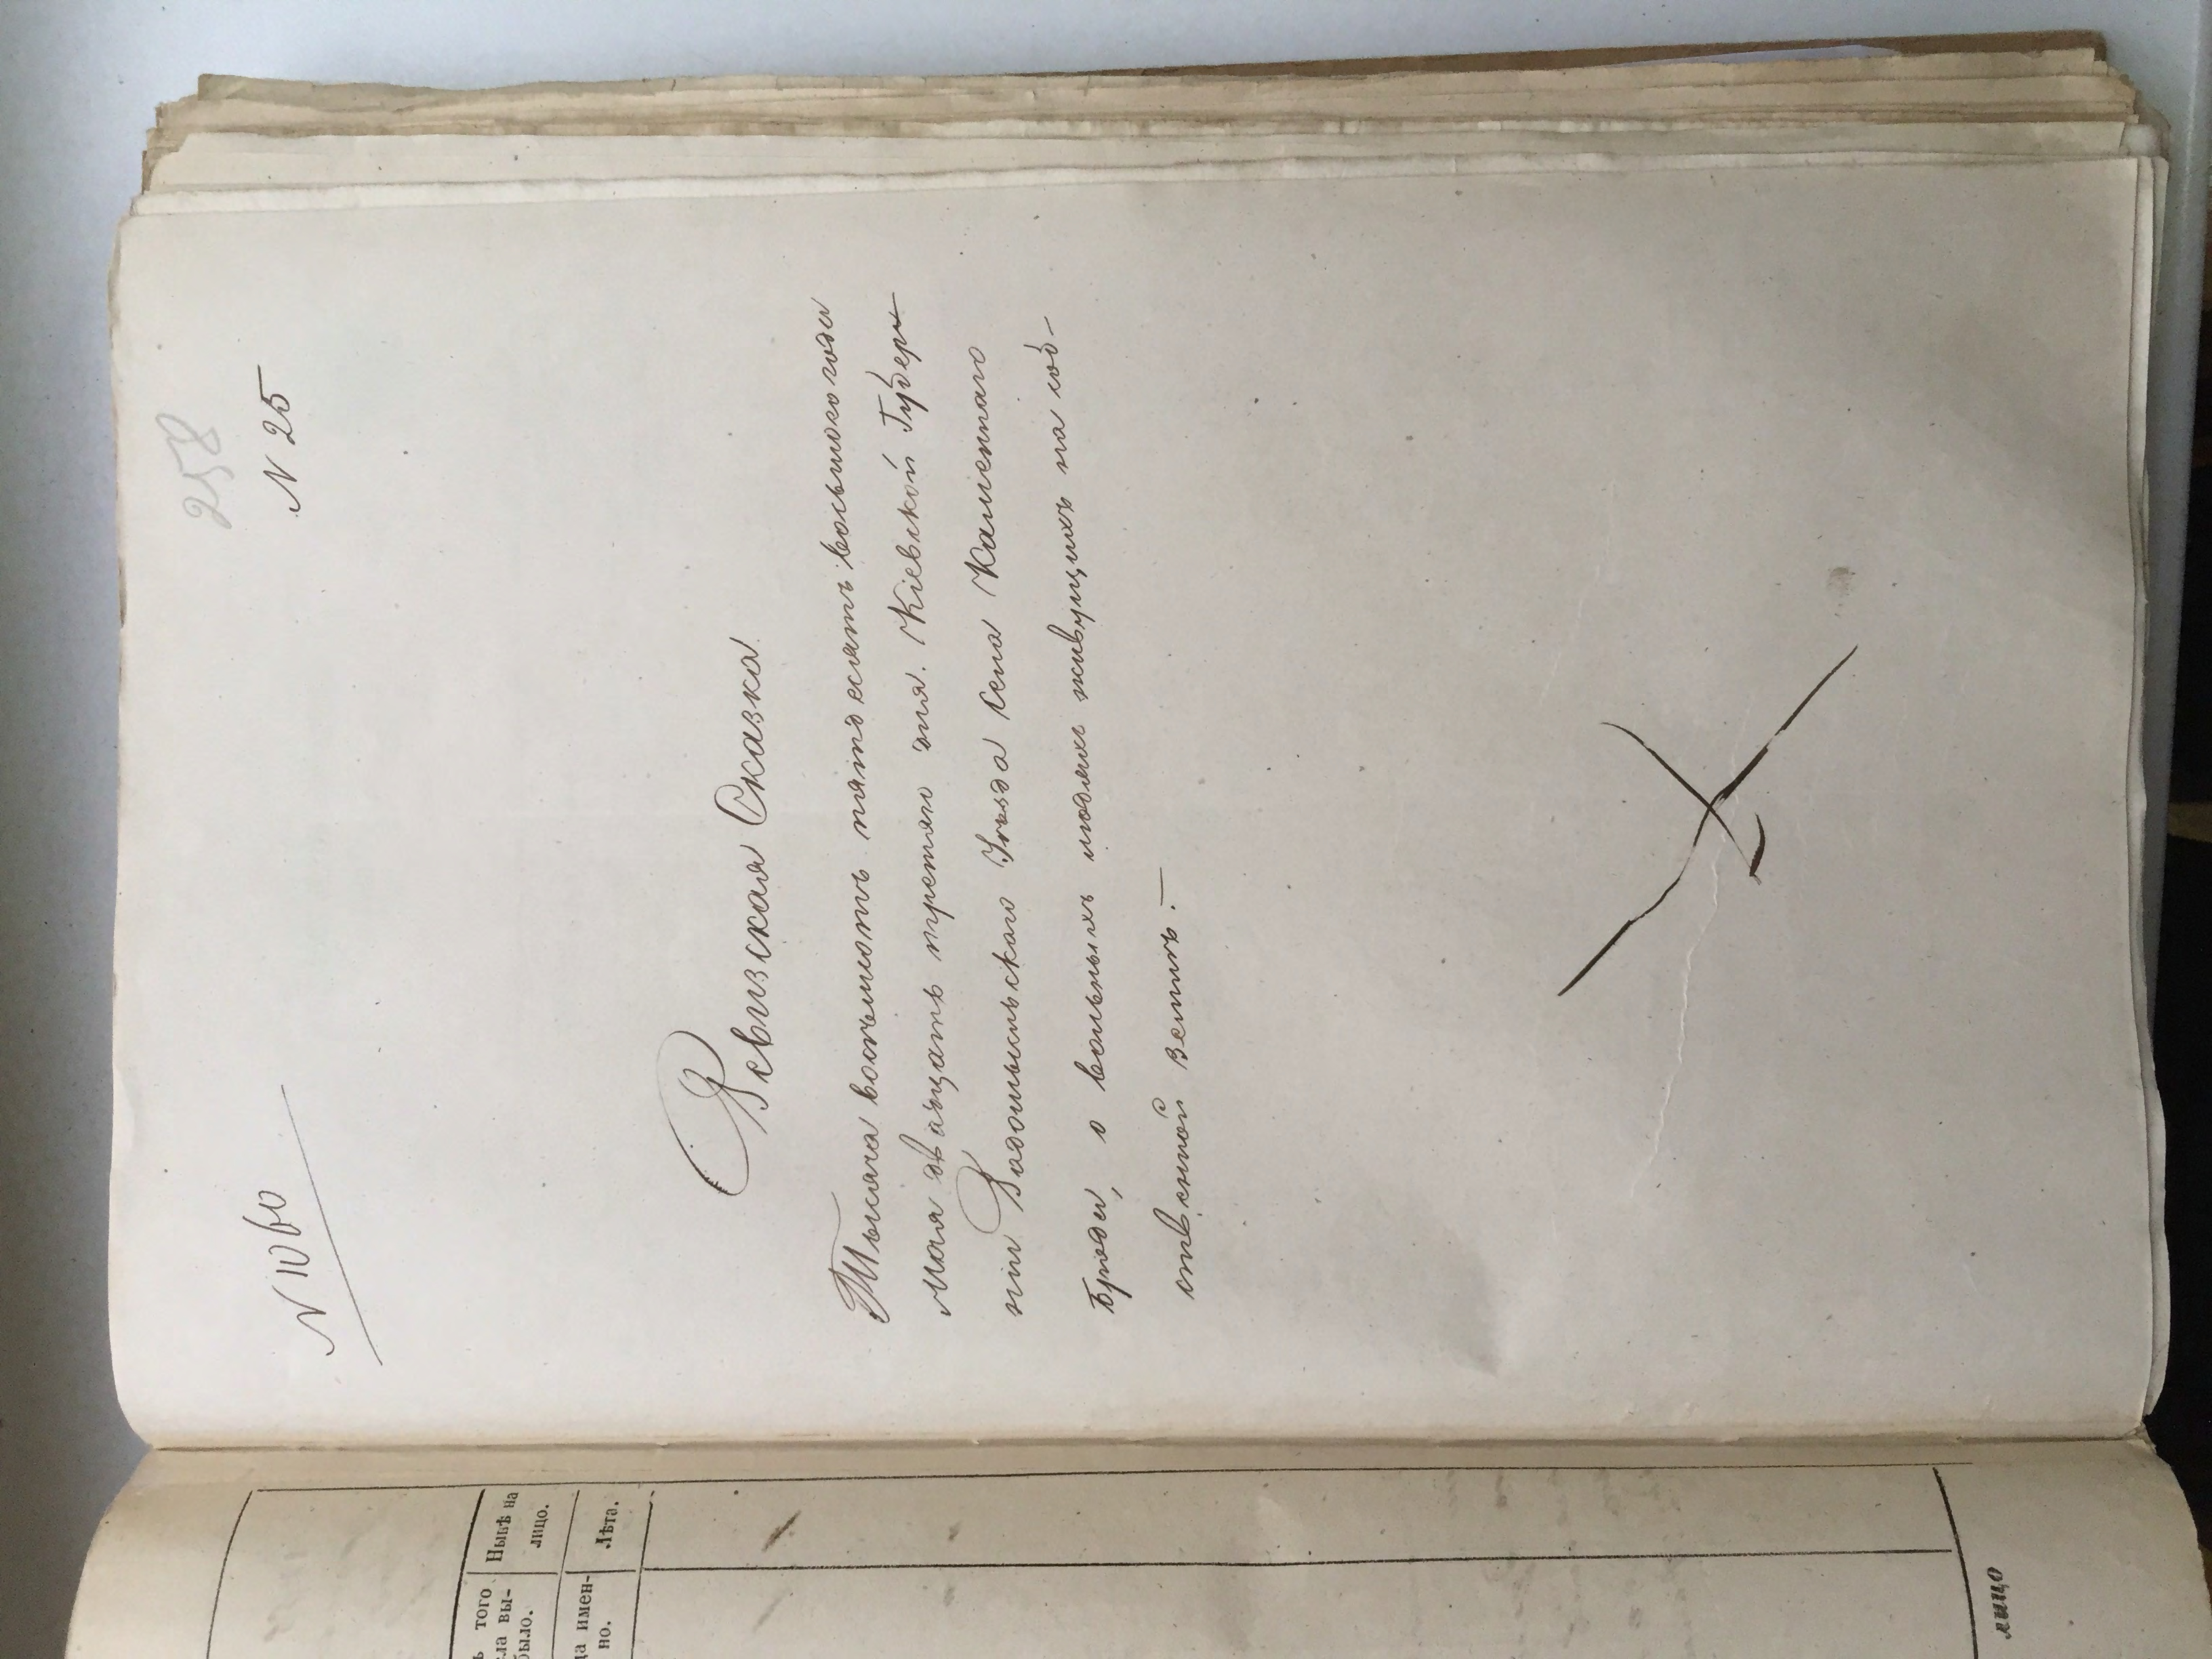 258
N 1060
N 25
Ревизская Сказка
Тысяча восемьсотъ пятьдесятъ восьмого года
Мая двадцать третьяго дня. Кіевской Губерн
ніи Радомысльского Уѣзда села Каменнаго
Брода, о вольныхъ людяхъ живущихъ на соб-
ственной землѣ.—
того
ла вы-
было.
Нынѣ на
лицо.
да имен-
но.
Лѣта.
лицо